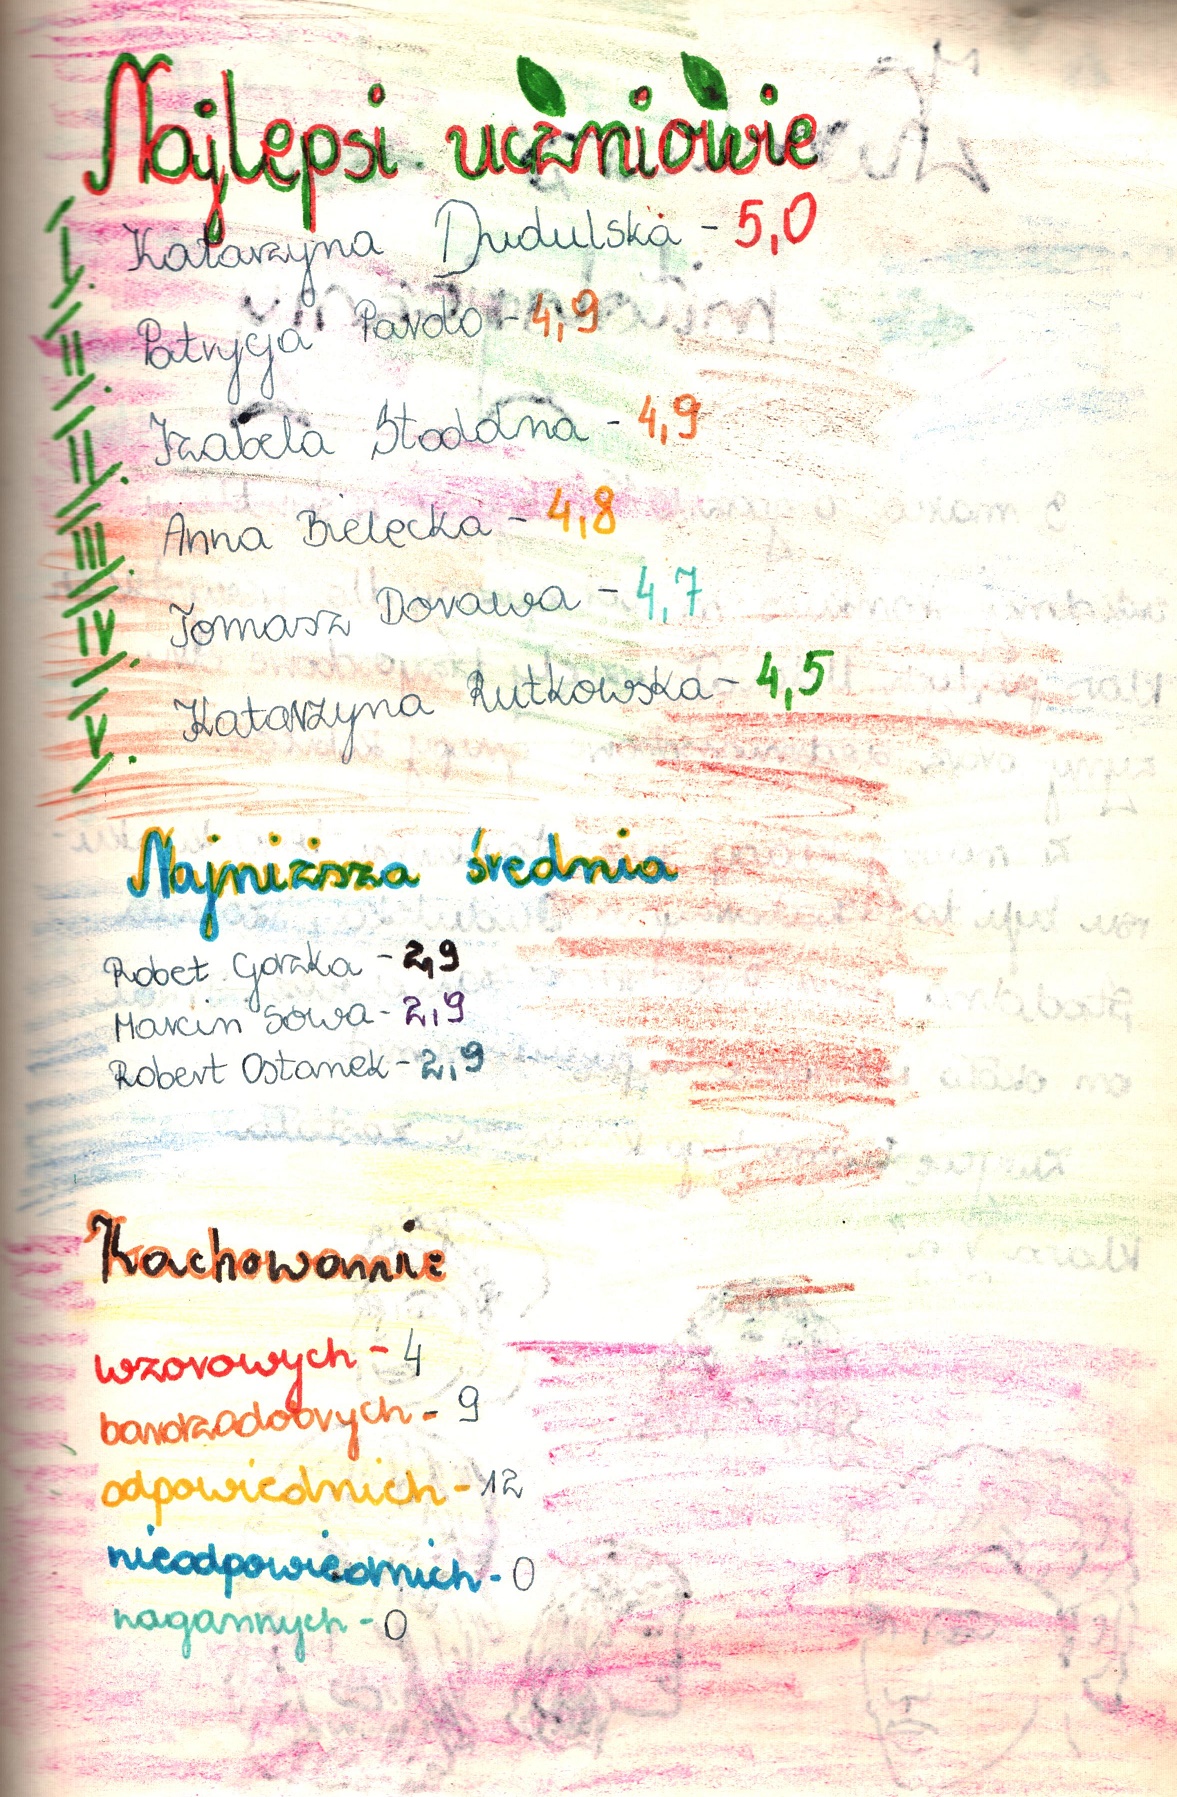 Najlepsi uczniowie
I. Katarzyna Dudulska - 5,0
II. Patrycja Pardo - 4,9
II. Izabela Stodólna - 4,9
III. Anna Bielecka - 4,8
IV. Tomasz Dorawa - 4,7
V. Katarzyna Rutkowska - 4,5
Najniższa średnia
Robet Gorzka - 2,9
Marcin Sowa - 2,9
Robert Ostanek - 2,9
Zachowanie
wzorowych - 4
bardzadobrych - 9
odpowiednich - 12
nieodpowiednich - 0
nagannych - 0